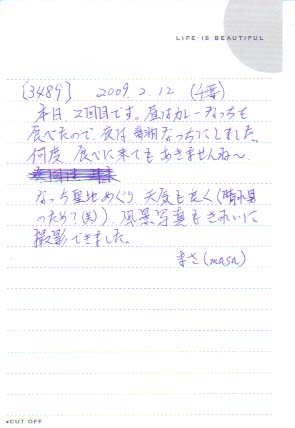 LIFE IS BEAUTIFUL
[3489] 2009.2.12 (千葉)
本日、2回目です。昼はカレーなっちを
食べたので、夜は なっちにしました。
何度 食べに来てもあきませんね〜
なっち聖地めぐり、天気も良く(晴れ男
のため?(笑))、風景写真もきれいに
撮影できました。
まさ(masa)
CUT OFF